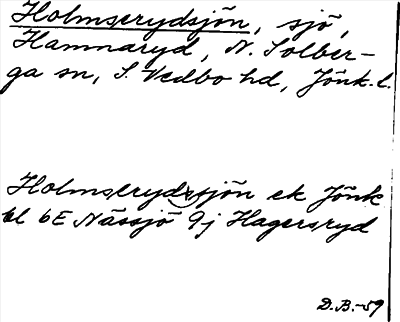 Holmserydsjön, sjö,
Hamnaryd, N. Solber-
ga sn, S. Vedbo hd, Jönk. l.
Holmserydssjön ek Jönk
bl 6E Nässjö 9j Hagersryd
D.B.-59